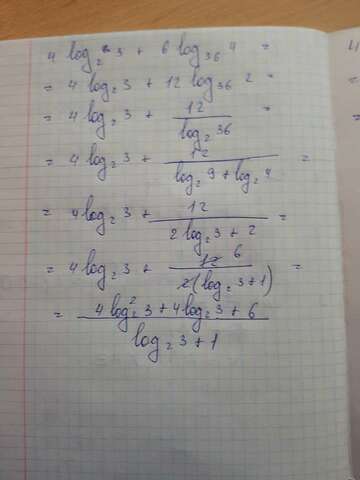 4 log₂ 3 + 6 log₃₆ 4 =
= 4 log₂ 3 + 12 log₃₆ 2 =
= 4 log₂ 3 + 12 / log₂ 36 =
= 4 log₂ 3 + 12 / (log₂ 9 + log₂ 4) =
= 4 log₂ 3 + 12 / (2 log₂ 3 + 2) =
= 4 log₂ 3 + 12 6 / 2(log₂ 3 + 1) =
= (4 log₂² 3 + 4 log₂ 3 + 6) / (log₂ 3 + 1)